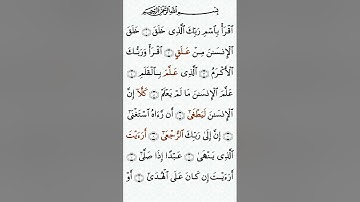 بِسْمِ ٱللَّهِ ٱلرَّحْمَٰنِ ٱلرَّحِيمِ
ٱقْرَأْ بِٱسْمِ رَبِّكَ ٱلَّذِى خَلَقَ ۝١ خَلَقَ
ٱلْإِنسَٰنَ مِنْ عَلَقٍ ۝٢ ٱقْرَأْ وَرَبُّكَ
ٱلْأَكْرَمُ ۝٣ ٱلَّذِى عَلَّمَ بِٱلْقَلَمِ ۝٤
عَلَّمَ ٱلْإِنسَٰنَ مَا لَمْ يَعْلَمْ ۝٥ كَلَّآ إِنَّ
ٱلْإِنسَٰنَ لَيَطْغَىٰٓ ۝٦ أَن رَّءَاهُ ٱسْتَغْنَىٰٓ
۝٧ إِنَّ إِلَىٰ رَبِّكَ ٱلرُّجْعَىٰٓ ۝٨ أَرَءَيْتَ
ٱلَّذِى يَنْهَىٰ ۝٩ عَبْدًا إِذَا صَلَّىٰٓ ۝١٠
أَرَءَيْتَ إِن كَانَ عَلَى ٱلْهُدَىٰٓ ۝١١ أَوْ